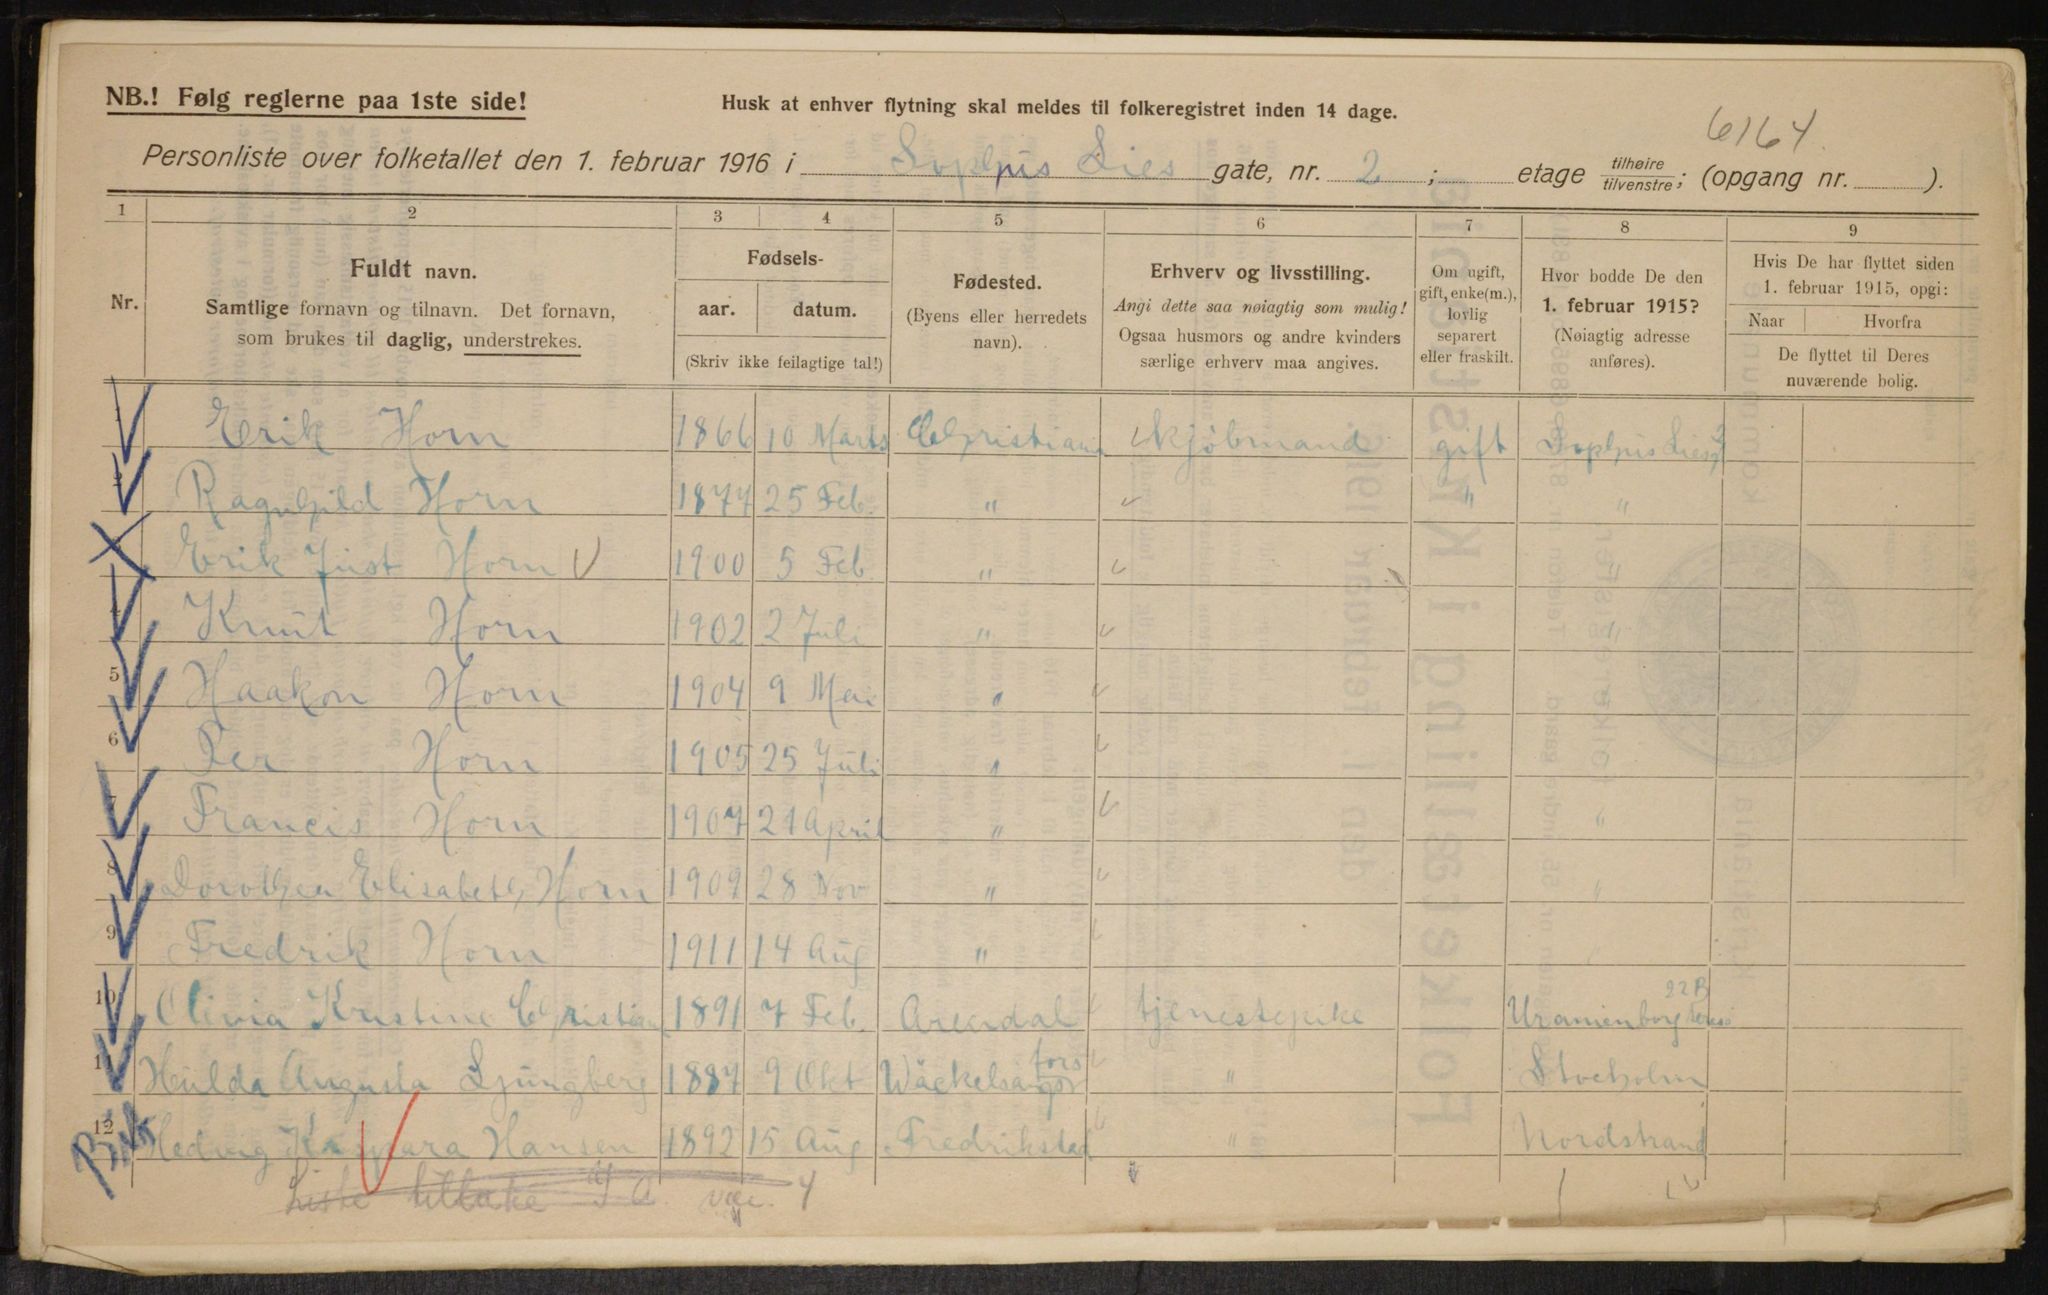 NB.! Følg reglerne paa 1ste side!
Husk at enhver flytning skal meldes til folkeregistret inden 14 dage.
6164.
Personliste over folketallet den 1. februar 1916 i Sophus Lies gate, nr. 2 ; etage tilhøire/tilvenstre; (opgang nr. ).
1 2 3 4 5 6 7 8 9
Nr.
Fuldt navn.
Samtlige fornavn og tilnavn. Det fornavn,
som brukes til daglig, understrekes.
Fødsels-
aar. datum.
(Skriv ikke feilagtige tal!)
Fødested.
(Byens eller herredets
navn).
Erhverv og livsstilling.
Angi dette saa nøiagtig som mulig!
Ogsaa husmors og andre kvinders
særlige erhverv maa angives.
Om ugift,
gift, enke(m.),
lovlig
separert
eller fraskilt.
Hvor bodde De den
1. februar 1915?
(Nøiagtig adresse
anføres).
Hvis De har flyttet siden
1. februar 1915, opgi:
Naar Hvorfra
De flyttet til Deres
nuværende bolig.
1 Erik Horn 1866 10 Marts Christiania Kjøbmand gift Sophus Lies 2
2 Ragnhild Horn 1877 25 Feb. " " "
Erik Just Horn 1900 5 Feb. " "
4 Knut Horn 1902 2 Juli " "
5 Haakon Horn 1904 9 Mai "
6 Per Horn 1905 25 Juli "
7 Francis Horn 1907 21 April " "
8 Dorothea Elisabeth Horn 1909 28 Nov " "
9 Fredrik Horn 1911 14 Aug " "
10 Olivia Kristine Christian 1891 7 Feb. Arendal tjenestepike Uranienborg 22B
11 Hulda Augusta Ljungberg 1887 9 Okt " Stocholm
12 Hedvig Kaspara Hansen 1892 15 Aug. Fredrikstad " Nordstrand